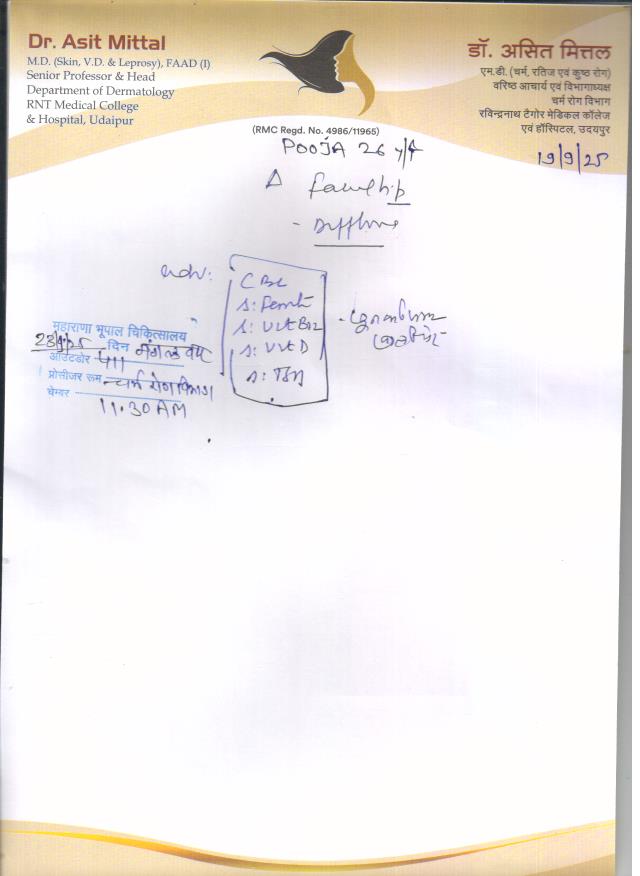 Dr. Asit Mittal
M.D. (Skin, V.D. & Leprosy), FAAD (I)
Senior Professor & Head
Department of Dermatology
RNT Medical College
& Hospital, Udaipur
डॉ. असित मित्तल
एम.डी. (चर्म, रतिज एवं कुष्ठ रोग)
वरिष्ठ आचार्य एवं विभागाध्यक्ष
चर्म रोग विभाग
रविन्द्रनाथ टैगोर मेडिकल कॉलेज
एवं हॉस्पिटल, उदयपुर
(RMC Regd. No. 4986/11965)
POOJA 26 y/F
19/9/25
Adv:
CBC
S: Ferriti
S: Vit B12
S: Vit D
S: TSH
महाराणा भूपाल चिकित्सालय
दिन मंगलवार
आउटडोर
प्रोसीजर रूम चर्म रोग विभाग
चेम्बर
11.30 AM